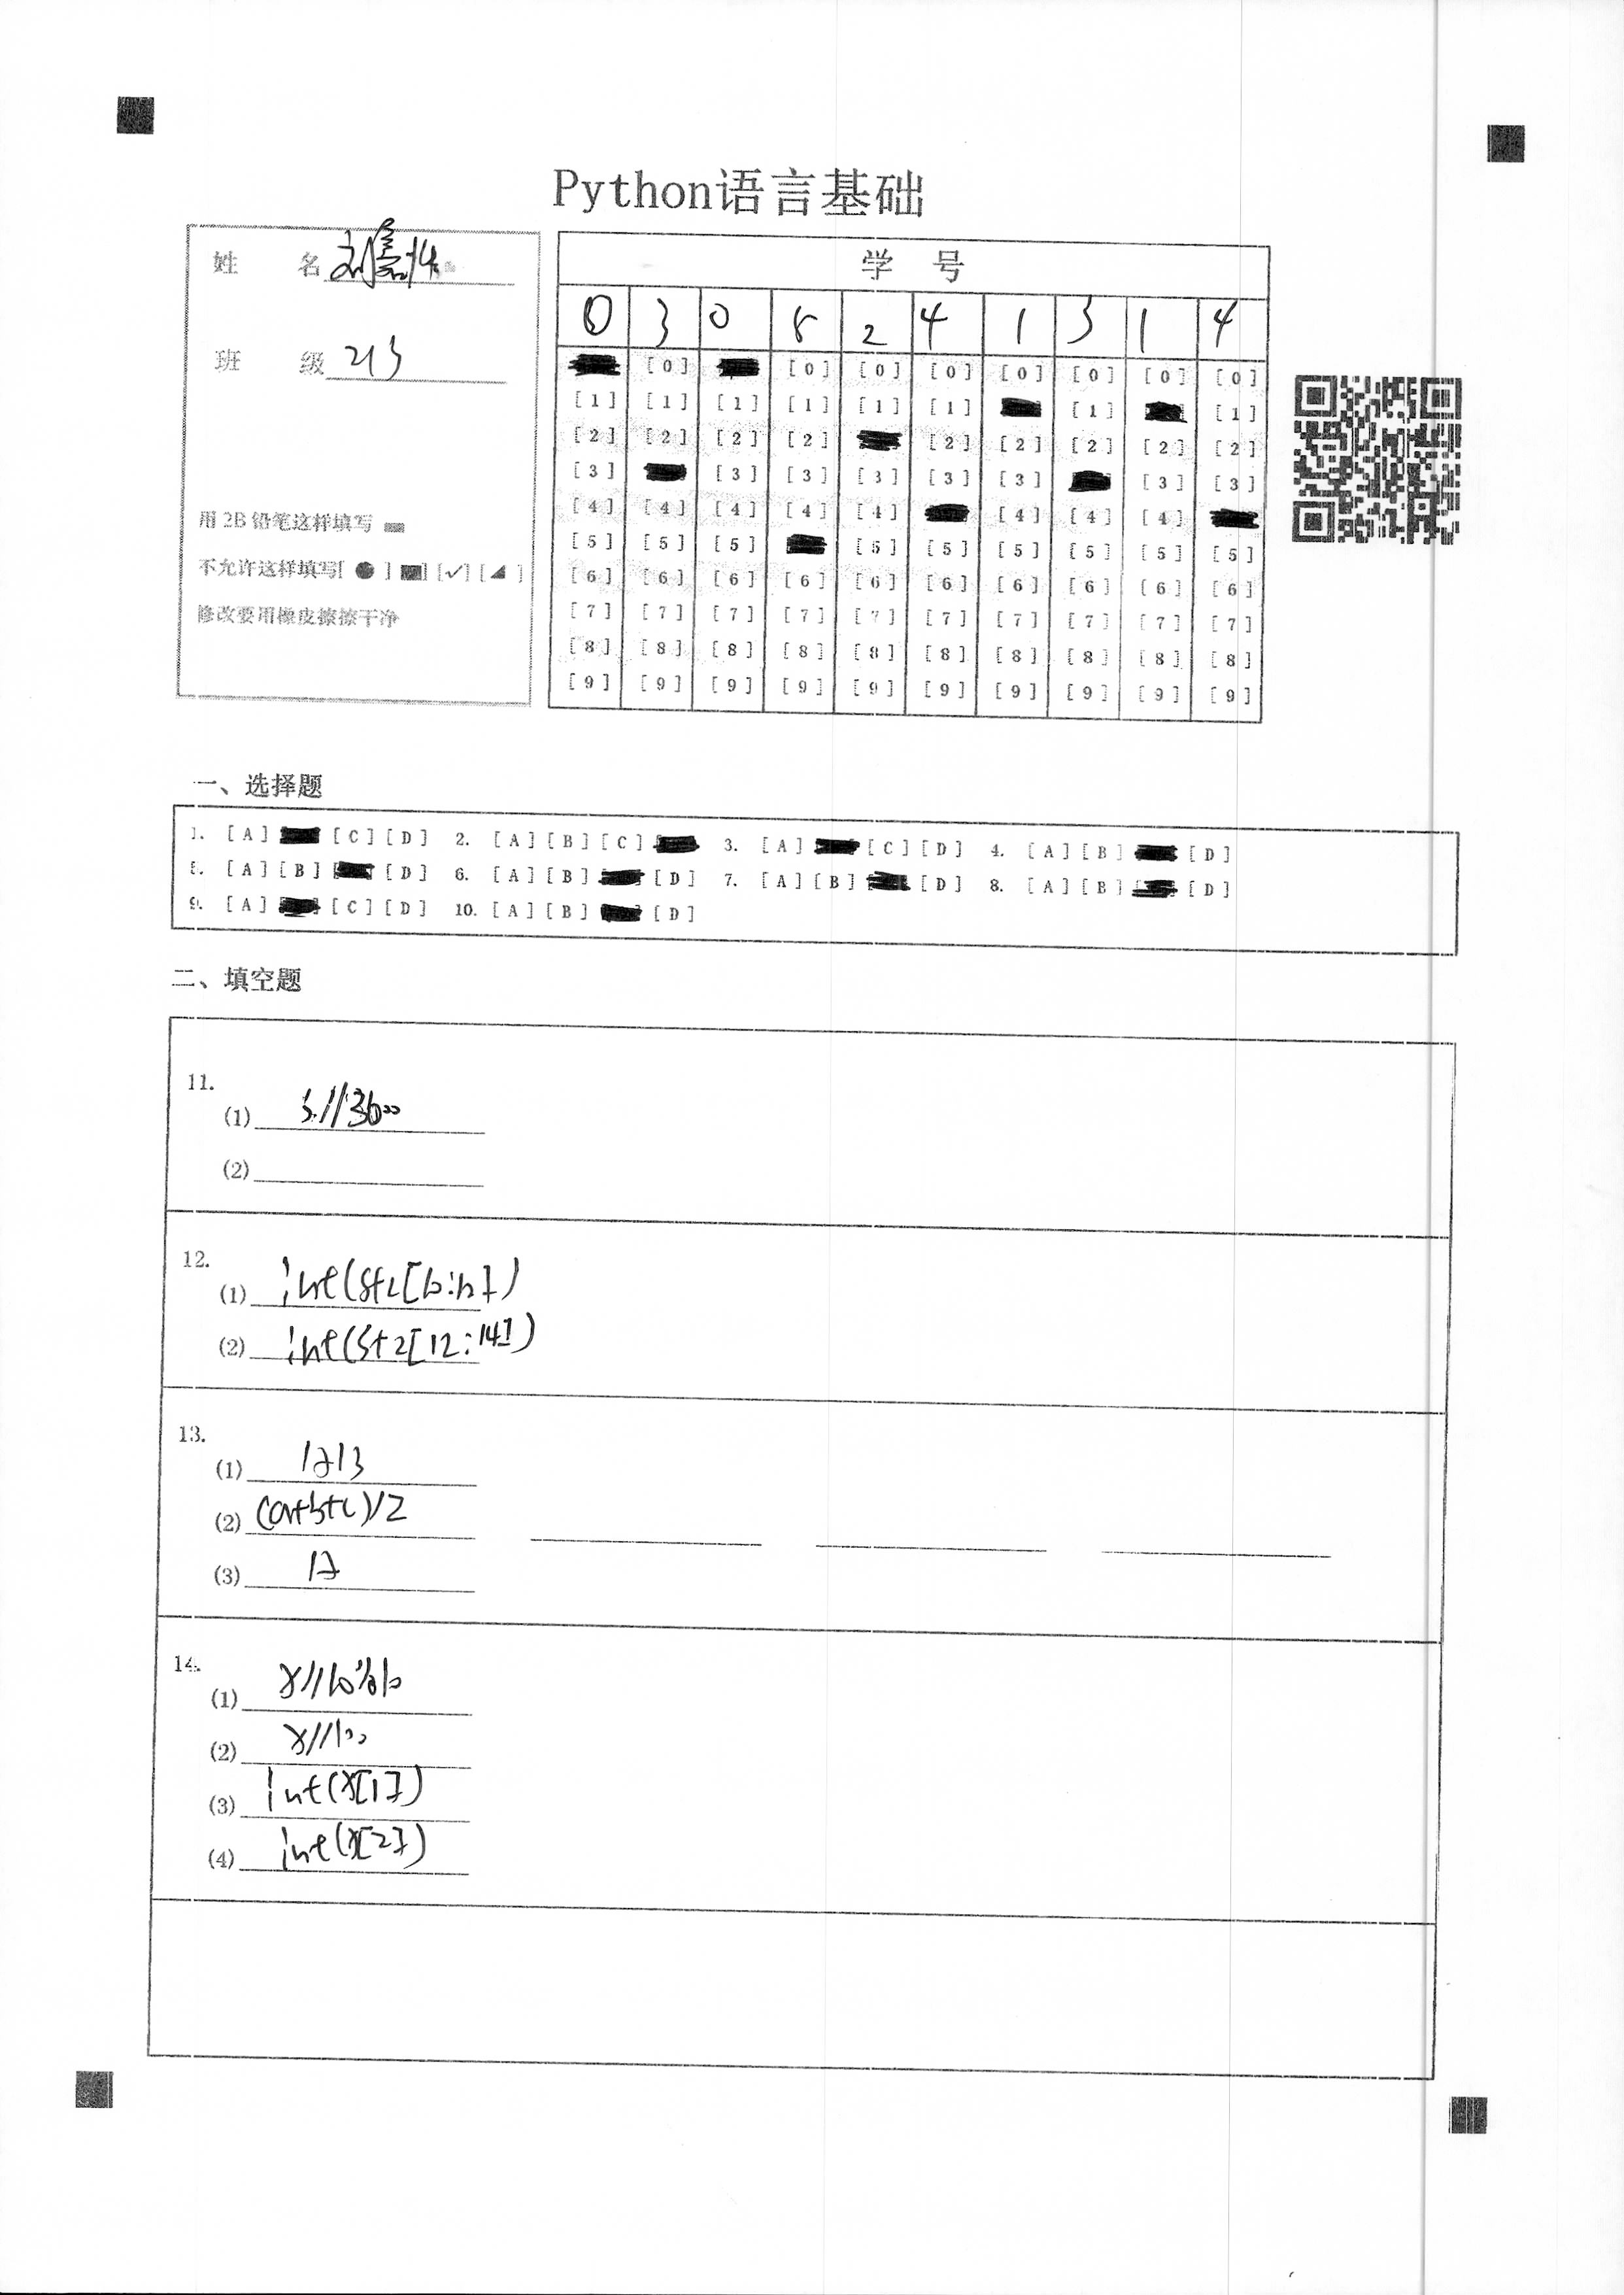 Python语言基础
姓 名
班 级 213
用 2B 铅笔这样填写
不允许这样填写[ ● ] [■] [✓] [◢ ]
修改要用橡皮擦擦干净
学 号
0 3 0 5 2 4 1 3 1 4
[0] [0] [0] [0] [0] [0] [0] [0]
[1] [1] [1] [1] [1] [1] [1] [1]
[2] [2] [2] [2] [2] [2] [2] [2] [2]
[3] [3] [3] [3] [3] [3] [3] [3]
[4] [4] [4] [4] [4] [4] [4] [4]
[5] [5] [5] [5] [5] [5] [5] [5] [5]
[6] [6] [6] [6] [6] [6] [6] [6] [6] [6]
[7] [7] [7] [7] [7] [7] [7] [7] [7] [7]
[8] [8] [8] [8] [8] [8] [8] [8] [8] [8]
[9] [9] [9] [9] [9] [9] [9] [9] [9] [9]
一、选择题
1. [A] [C] [D] 2. [A] [B] [C] 3. [A] [C] [D] 4. [A] [B] [D]
5. [A] [B] [D] 6. [A] [B] [D] 7. [A] [B] [D] 8. [A] [B] [D]
9. [A] [C] [D] 10. [A] [B] [D]
二、填空题
11.
(1) s//3600
(2)
12.
(1)
(2) int(St2[12:14])
13.
(1)
(2) (a+b+c)/2
(3)
14.
(1) x//10%10
(2) x//100
(3) int(x[1])
(4) int(x[2])